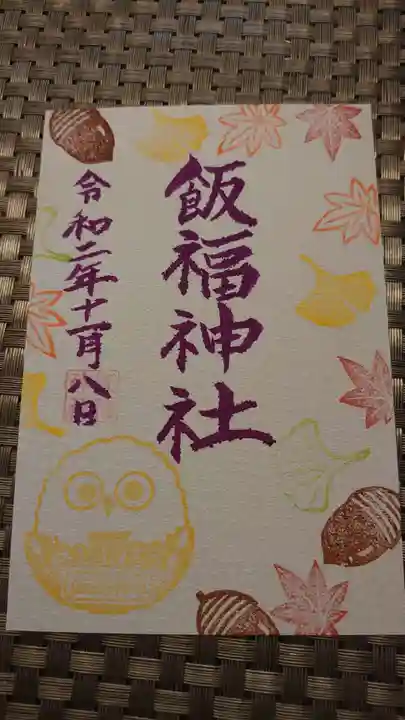 飯福神社
令和二年十一月八日